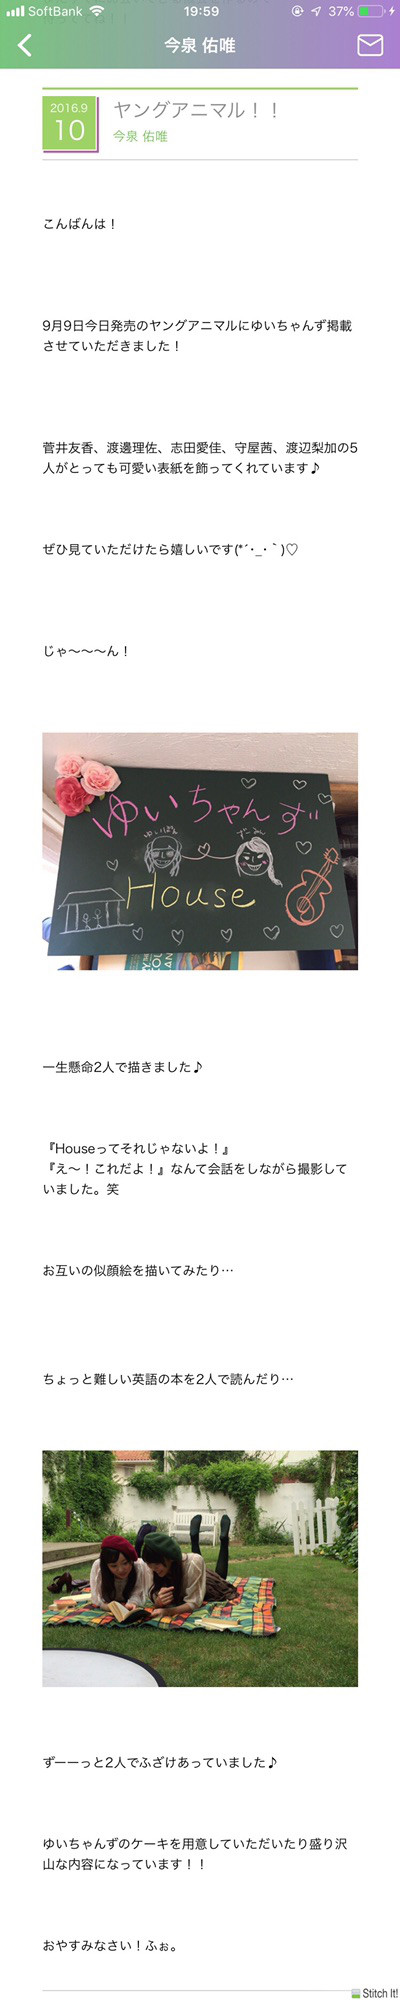 SoftBank 19:59 37%
今泉 佑唯
2016.9
10
ヤングアニマル！！
今泉 佑唯
こんばんは！
9月9日今日発売のヤングアニマルにゆいちゃんず掲載
させていただきました！
菅井友香、渡邊理佐、志田愛佳、守屋茜、渡辺梨加の5
人がとっても可愛い表紙を飾ってくれています♪
ぜひ見ていただけたら嬉しいです(*´･_･｀)♡
じゃ〜〜〜ん！
ゆいちゃんず
ゆいぽん
ずーみん
House
一生懸命2人で描きました♪
『Houseってそれじゃないよ！』
『え〜！これだよ！』なんて会話をしながら撮影して
いました。笑
お互いの似顔絵を描いてみたり…
ちょっと難しい英語の本を2人で読んだり…
ずーーっと2人でふざけあっていました♪
ゆいちゃんずのケーキを用意していただいたり盛り沢
山な内容になっています！！
おやすみなさい！ふぉ。
Stitch It!